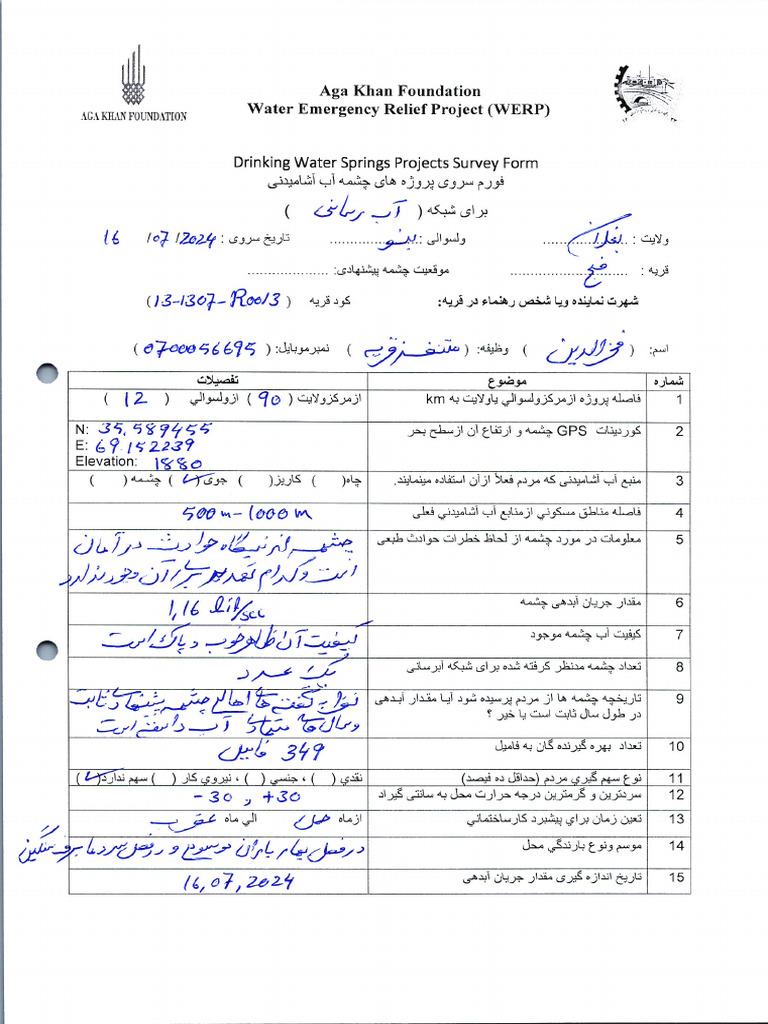 AGA KHAN FOUNDATION
Aga Khan Foundation
Water Emergency Relief Project (WERP)
Drinking Water Springs Projects Survey Form
فورم سروی پروژه های چشمه آب آشامیدنی
برای شبکه ( آب رسانی )
ولایت : بغلان ولسوالی : تاریخ سروی : 16 /07 /2024
قریه : موقعیت چشمه پیشنهادی: ....................
شهرت نماینده ویا شخص رهنماء در قریه: کود قریه ( 13-1307-R0013 )
اسم: ( فخرالدین ) وظیفه: ( متنفذ قریه ) نمبرموبایل: ( 0700056695 )
شماره موضوع تفصیلات
1 فاصله پروژه ازمرکزولسوالي ياولايت به km ازمرکزولايت ( 90 ) ازولسوالي ( 12 )
2 کوردینات GPS چشمه و ارتفاع آن ازسطح بحر N: 35.589455
E: 69.152239
Elevation: 1880
3 منبع آب آشامیدنی که مردم فعلاً ازآن استفاده مینمایند. چاه( ) کاریز( ) جوی( ✓ ) چشمه ( )
4 فاصله مناطق مسکوني ازمنابع آب آشامیدني فعلی 500m-1000m
5 معلومات در مورد چشمه از لحاظ خطرات حوادث طبعی چشمه از نگاه حوادث در آمان
است و کدام تهدید برای آن وجود ندارد
6 مقدار جریان آبدهی چشمه 1,16 lit/sec
7 کیفیت آب چشمه موجود کیفیت آن ظاهر خوب و پاک است
8 تعداد چشمه مدنظر گرفته شده برای شبکه آبرسانی یک عدد
9 تاریخچه چشمه ها از مردم پرسیده شود آیـا مقـدار آبـدهی نظر به گفته های اهالی چشمه پیشنهادی ثابت
در طول سال ثابت است یا خیر ؟ وسال های آب داشته است
10 تعداد بهره گیرنده گان به فامیل 349 فامیل
11 نوع سهم گیري مردم (حداقل ده فیصد) نقدي ( ) ، جنسي ( ) ، نیروي کار ( ) سهم ندارد( ✓ )
12 سردترین و گرمترین درجه حرارت محل به سانتی گیراد - 30 و +30
13 تعین زمان براي پیشبرد کارساختماني ازماه حمل الي ماه عقرب
14 موسم ونوع بارندگي محل در فصل بهار باران و در فصل سرما برف سنگین
15 تاریخ اندازه گیری مقدار جریان آبدهی 16,07,2024